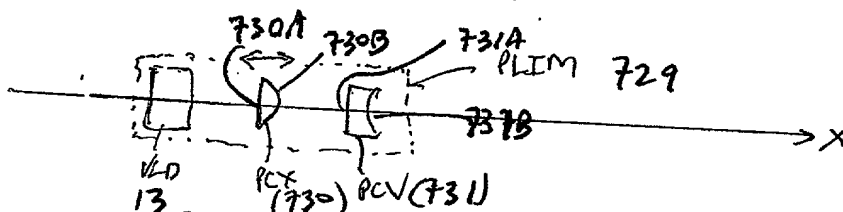 730A 730B 731A PLIM 729
731B X
VLD PCX (730) PCV (731)
13